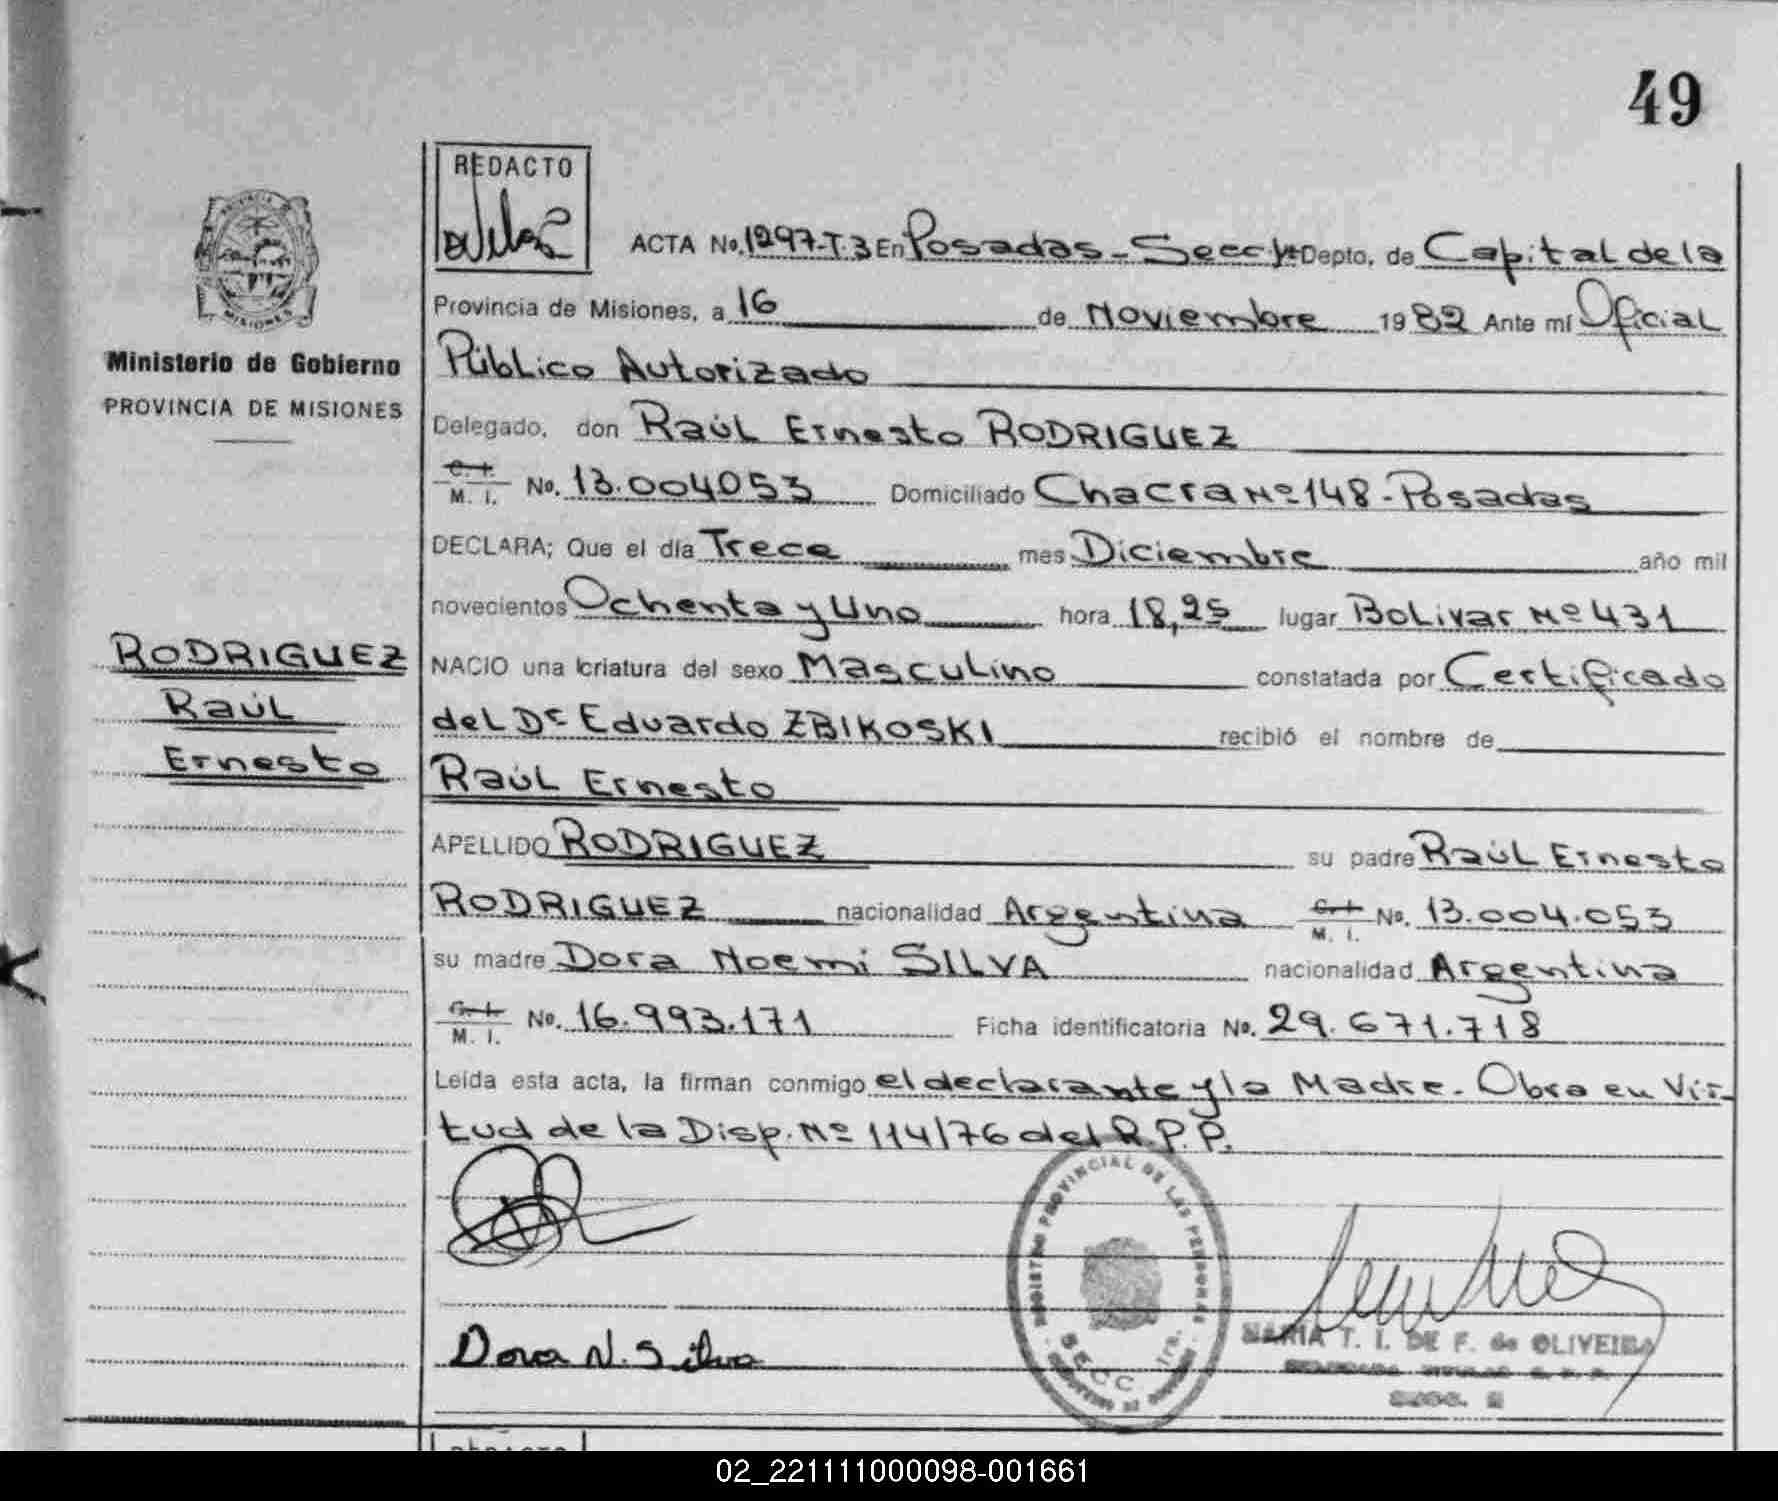 49
REDACTO
ACTA No. 1297-T.3 En Posadas - Secc 1ª Depto. de Capital de la
Provincia de Misiones, a 16 de Noviembre 1982 Ante mí Oficial
Ministerio de Gobierno
Público Autorizado
PROVINCIA DE MISIONES
Delegado, don Raúl Ernesto RODRIGUEZ
C. I.
M. I. No. 13.004053 Domiciliado Chacra Nº 148 - Posadas
DECLARA; Que el día Trece mes Diciembre año mil
novecientos Ochenta y Uno hora 18,25 lugar Bolivar Nº 431
RODRIGUEZ
Raúl
Ernesto
NACIO una criatura del sexo Masculino constatada por Certificado
del Dr Eduardo ZBIKOSKI recibió el nombre de
Raúl Ernesto
APELLIDO RODRIGUEZ su padre Raúl Ernesto
RODRIGUEZ nacionalidad Argentina C. I. M. I. No. 13.004.053
su madre Dora Noemi SILVA nacionalidad Argentina
C. I.
M. I. No. 16.993.171 Ficha identificatoria No. 29.671.718
Leída esta acta, la firman conmigo el declarante y la Madre. Obra en Vir-
tud de la Disp. Nº 114/76 del R.P.P.
REGISTRO PROVINCIAL DE LAS PERSONAS
SECC. 1ra.
Dora N. Silva
MARIA T. I. DE F. de OLIVEIRA
02_221111000098-001661